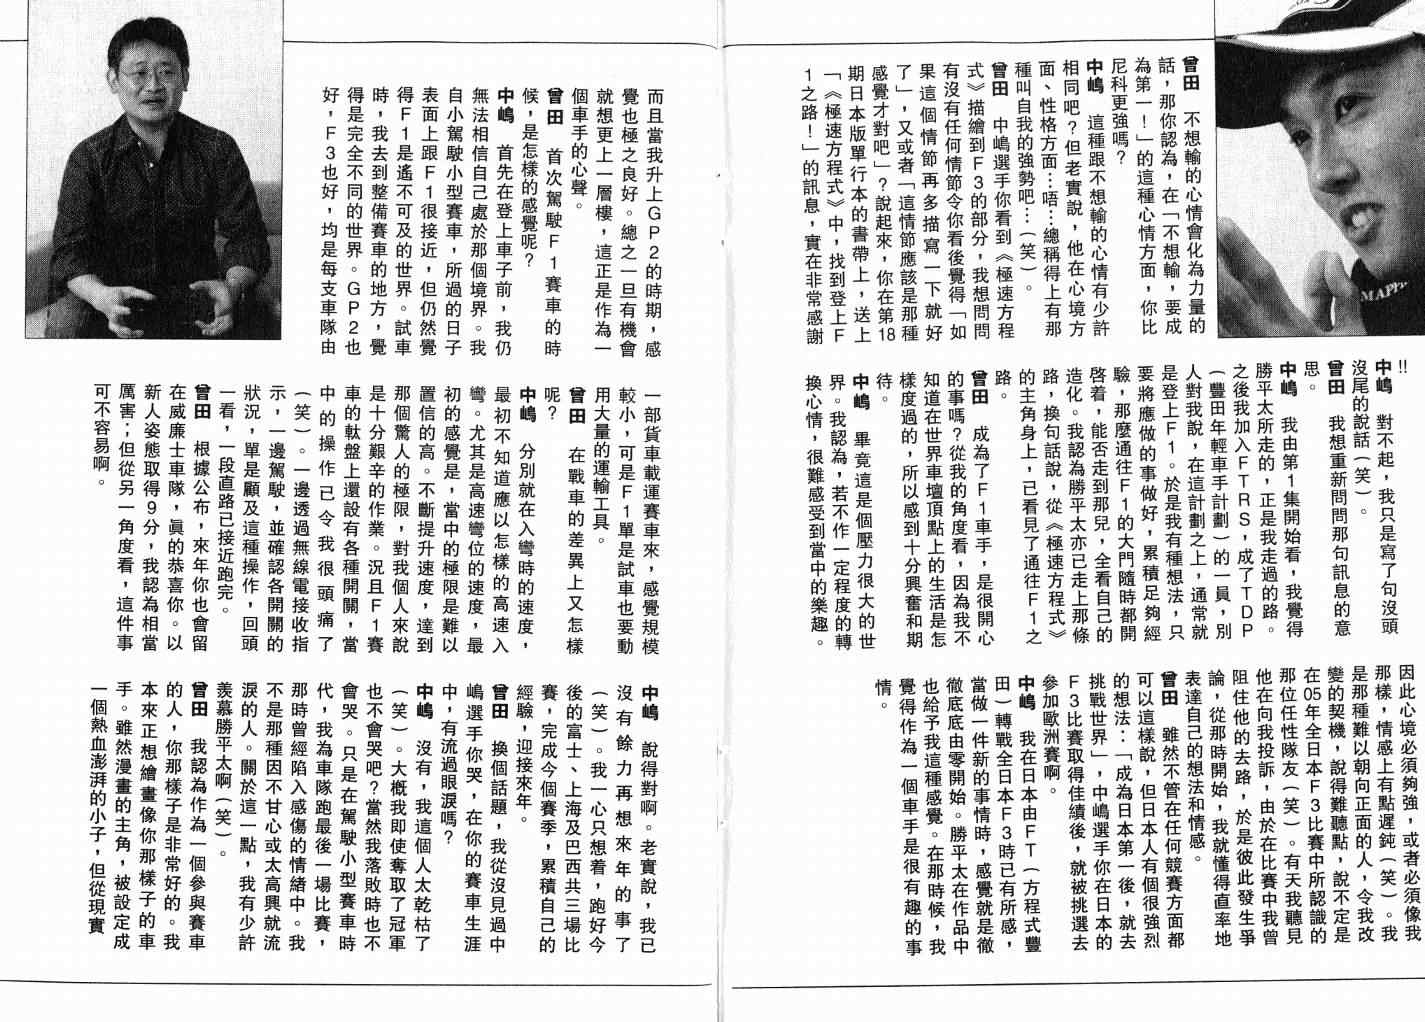 曾田　不想輸的心情會化為力量的
話，那你認為，在「不想輸，要成
為第一！」的這種心情方面，你比
尼科更強嗎？
中嶋　這種跟不想輸的心情有少許
相同吧？但老實說，他在心境方
面、性格方面…唔…總稱得上有那
種叫自我的強勢吧…（笑）。
曾田　中嶋選手你看到《極速方程
式》描繪到F3的部分，我想問問
有沒有任何情節令你看後覺得「如
果這個情節再多描寫一下就好
了」，又或者「這情節應該是那種
感覺才對吧」？說起來，你在第18
期日本版單行本的書帶上，送上
「《極速方程式》中，找到登上F
1之路！」的訊息，實在非常感謝
!!
中嶋　對不起，我只是寫了句沒頭
沒尾的說話（笑）。
曾田　我想重新問問那句訊息的意
思。
中嶋　我由第1集開始看，我覺得
勝平太所走的，正是我走過的路。
之後我加入FTRS，成了TDP
（豐田年輕車手計劃）的一員，別
人對我說，在這計劃之上，通常就
是登上F1。於是我有種想法，只
要將應做的事做好，累積足夠經
驗，那麼通往F1的大門隨時都開
啓着，能否走到那兒，全看自己的
造化。我認為勝平太亦已走上那條
路，換句話說，從《極速方程式》
的主角身上，已看見了通往F1之
路。
曾田　成為了F1車手，是很開心
的事嗎？從我的角度看，因為我不
知道在世界車壇頂點上的生活是怎
樣度過的，所以感到十分興奮和期
待。
中嶋　畢竟這是個壓力很大的世
界。我認為，若不作一定程度的轉
換心情，很難感受到當中的樂趣。
因此心境必須夠強，或者必須像我
那樣，情感上有點遲鈍（笑）。我
是那種難以朝向正面的人，令我改
變的契機，說得難聽點，說不定是
在05年全日本F3比賽中所認識的
那位任性隊友（笑）。有天我聽見
他在向我投訴，由於在比賽中我曾
阻住他的去路，於是彼此發生爭
論，從那時開始，我就懂得直率地
表達自己的想法和情感。
曾田　雖然不管在任何競賽方面都
可以這樣說，但日本人有個很強烈
的想法：「成為日本第一後，就去
挑戰世界」，中嶋選手你在日本的
F3比賽取得佳績後，就被挑選去
參加歐洲賽啊。
中嶋　我在日本由FT（方程式豐
田）轉戰全日本F3時已有所感，
當做一件新的事情時，感覺就是徹
徹底底由零開始。勝平太在作品中
也給予我這種感覺。在那時候，我
覺得作為一個車手是很有趣的事
情。
而且當我升上GP2的時期，感
覺也極之良好。總之一旦有機會
就想更上一層樓，這正是作為一
個車手的心聲。
曾田　首次駕駛F1賽車的時
候，是怎樣的感覺呢？
中嶋　首先在登上車子前，我仍
無法相信自己處於那個境界。我
自小駕駛小型賽車，所過的日子
表面上跟F1很接近，但仍然覺
得F1是遙不可及的世界。試車
時，我去到整備賽車的地方，覺
得是完全不同的世界。GP2也
好，F3也好，均是每支車隊由
一部貨車載運賽車來，感覺規模
較小，可是F1單是試車也要動
用大量的運輸工具。
曾田　在戰車的差異上又怎樣
呢？
中嶋　分別就在入彎時的速度，
最初不知道應以怎樣的高速入
彎。尤其是高速彎位的速度，最
初的感覺是，當中的極限是難以
置信的高。不斷提升速度，達到
那個驚人的極限，對我個人來說
是十分艱辛的作業。況且F1賽
車的軚盤上還設有各種開關，當
中的操作已令我很頭痛了
（笑）。一邊透過無線電接收指
示，一邊駕駛，並確認各開關的
狀況，單是顧及這種操作，回頭
一看，一段直路已接近跑完。
曾田　根據公布，來年你也會留
在威廉士車隊，真的恭喜你。以
新人姿態取得9分，我認為相當
厲害；但從另一角度看，這件事
可不容易啊。
中嶋　說得對啊。老實說，我已
沒有餘力再想來年的事了
（笑）。我一心只想着，跑好今
後的富士、上海及巴西共三場比
賽，完成今個賽季，累積自己的
經驗，迎接來年。
曾田　換個話題，我從沒見過中
嶋選手你哭，在你的賽車生涯
中，有流過眼淚嗎？
中嶋　沒有，我這個人太乾枯了
（笑）。大概我即使奪取了冠軍
也不會哭吧？當然我落敗時也不
會哭。只是在駕駛小型賽車時
代，我為車隊跑最後一場比賽，
那時曾經陷入感傷的情緒中。我
不是那種因不甘心或太高興就流
淚的人。關於這一點，我有少許
羨慕勝平太啊（笑）。
曾田　我認為作為一個參與賽車
的人，你那樣子是非常好的。我
本來正想繪畫像你那樣子的車
手。雖然漫畫的主角，被設定成
一個熱血澎湃的小子，但從現實